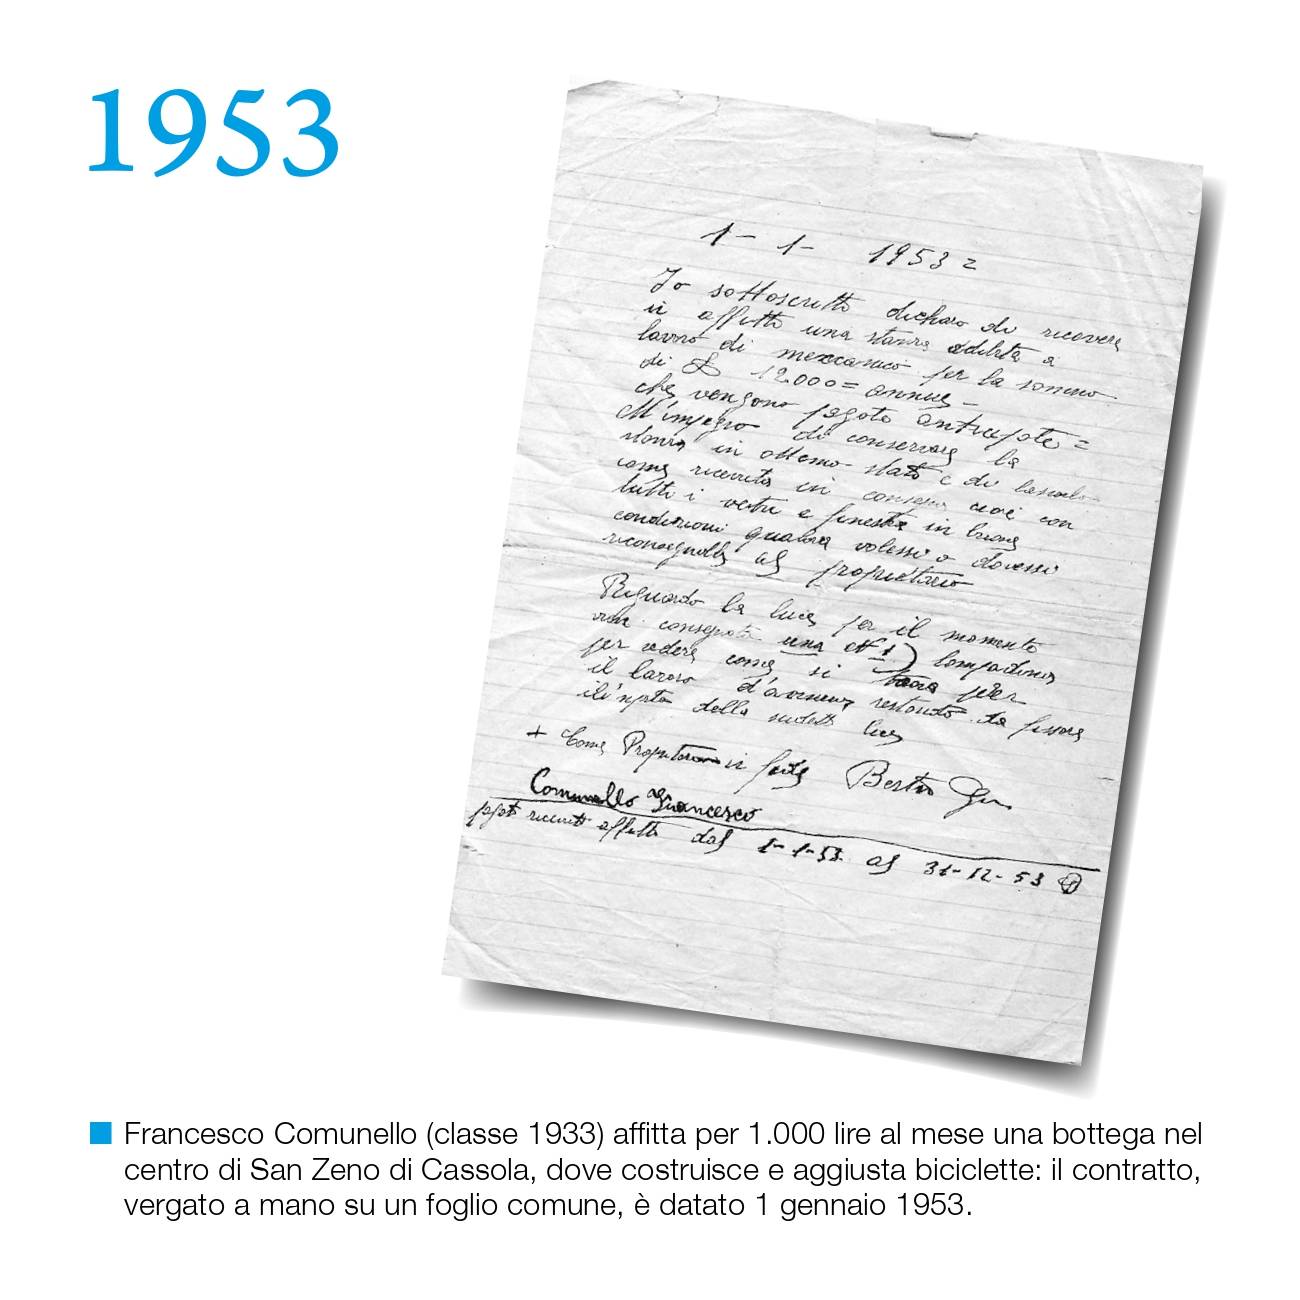 1953
1 - 1 - 1953 =
Io sottoscritto dichiaro di ricevere
in affitto una stanza adibita a
lavoro di meccanico per la somma
di £ 12.000 = annue -
che vengono pagate anticipate =
M'impegno di conservare la
stanza in ottimo stato e di
come ricevuta in consegna cioè con
tutti i vetri e finestre in buone
condizioni qualora volessi o dovessi
riconsegnarla al proprietario
Riguardo la luce per il momento
consegnata una (N 1) lampadina
per vedere come si per
il lavoro d'avvenire restando da fissare
della sudetta luce
+ Come Proprietario in fede
Comunello Francesco
pagato ricevuto affitto dal 1-1-53 al 31-12-53
Francesco Comunello (classe 1933) affitta per 1.000 lire al mese una bottega nel
centro di San Zeno di Cassola, dove costruisce e aggiusta biciclette: il contratto,
vergato a mano su un foglio comune, è datato 1 gennaio 1953.